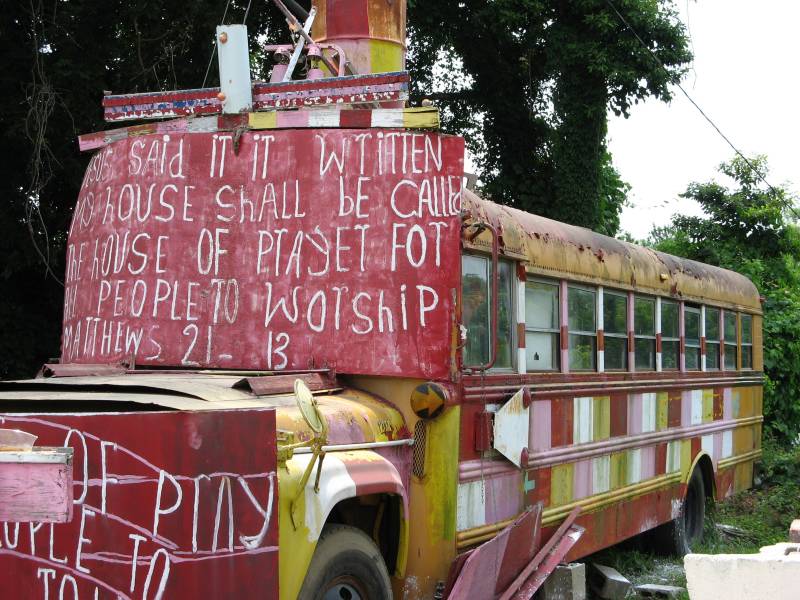 JESUS SAid IT iT WRiTTEN
HOUSE ShALL bE CALLEd
ThE hOUSE OF PRAYER FOR
All PEOPLE TO WORShiP
MATThEWS 21- 13
OF PRAY
PEOPLE
TO